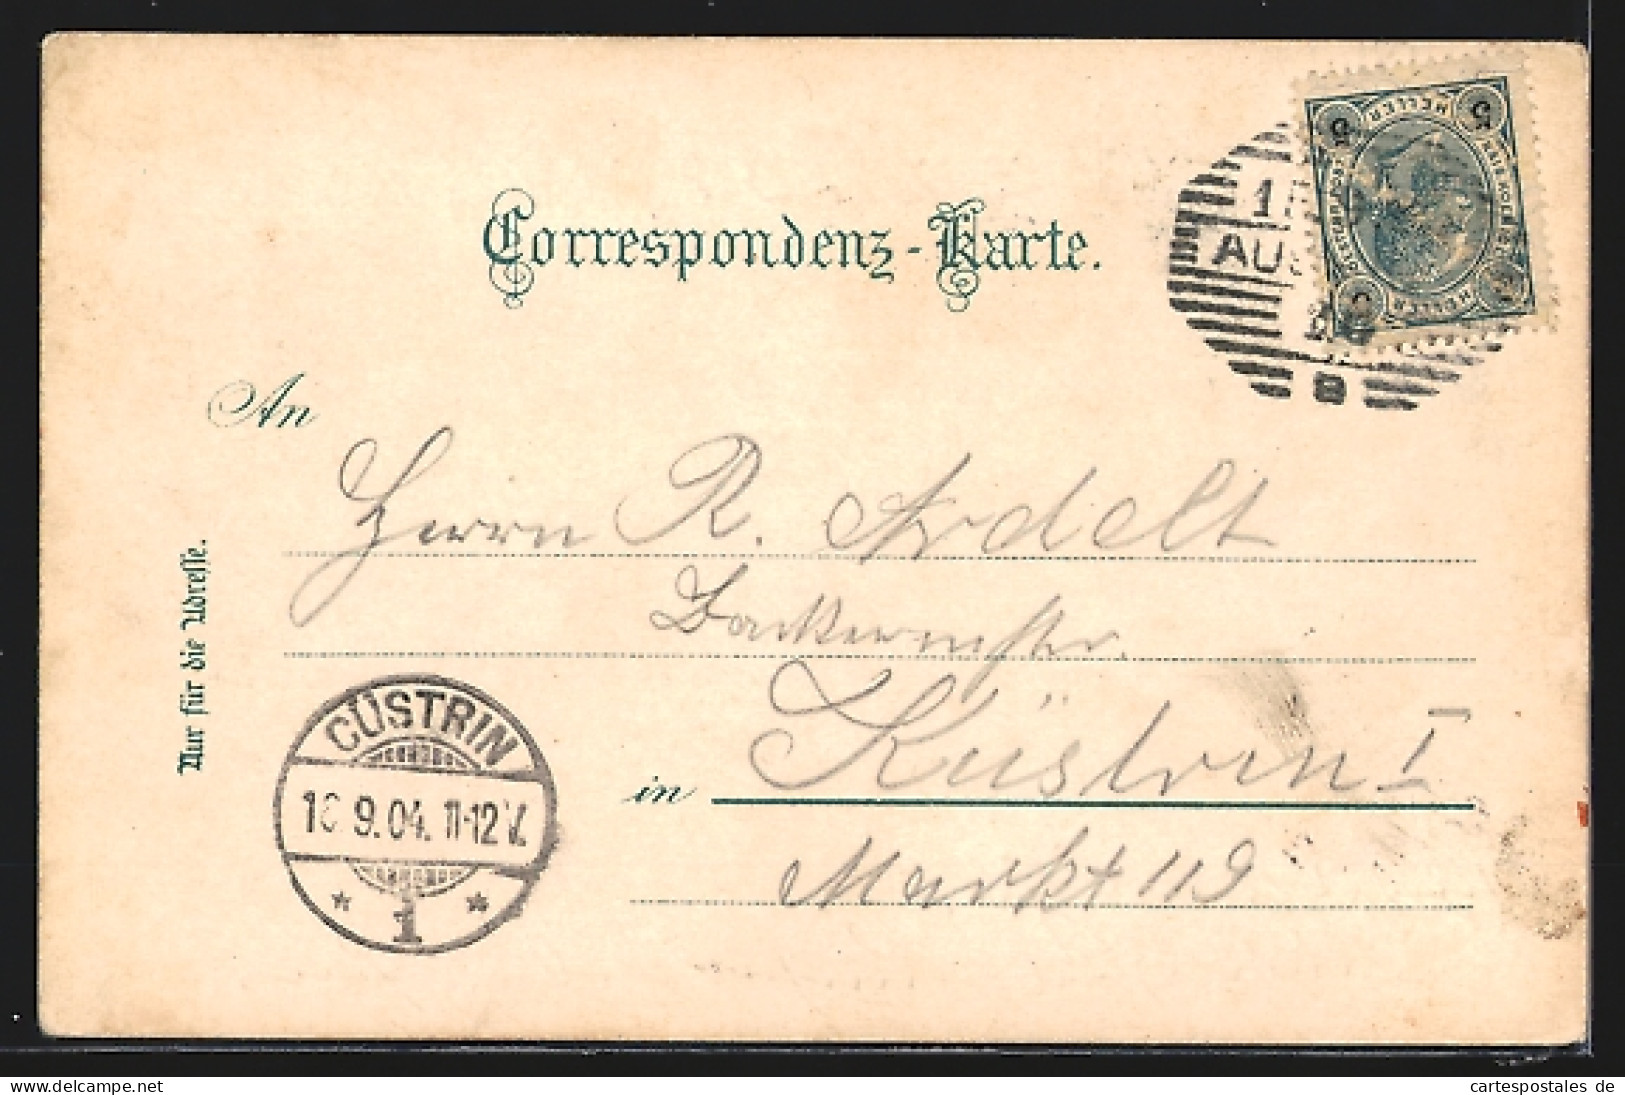 Correspondenz-Karte.
5 HELLER 5
5 HELLER
AU
An
Herrn R. Ardelt
Backermstr.
in Küstrin I
Markt 119
Nur für die Adresse.
CÜSTRIN
9.04. 11-12 V.
* 1 *
Europe
cartespostales de